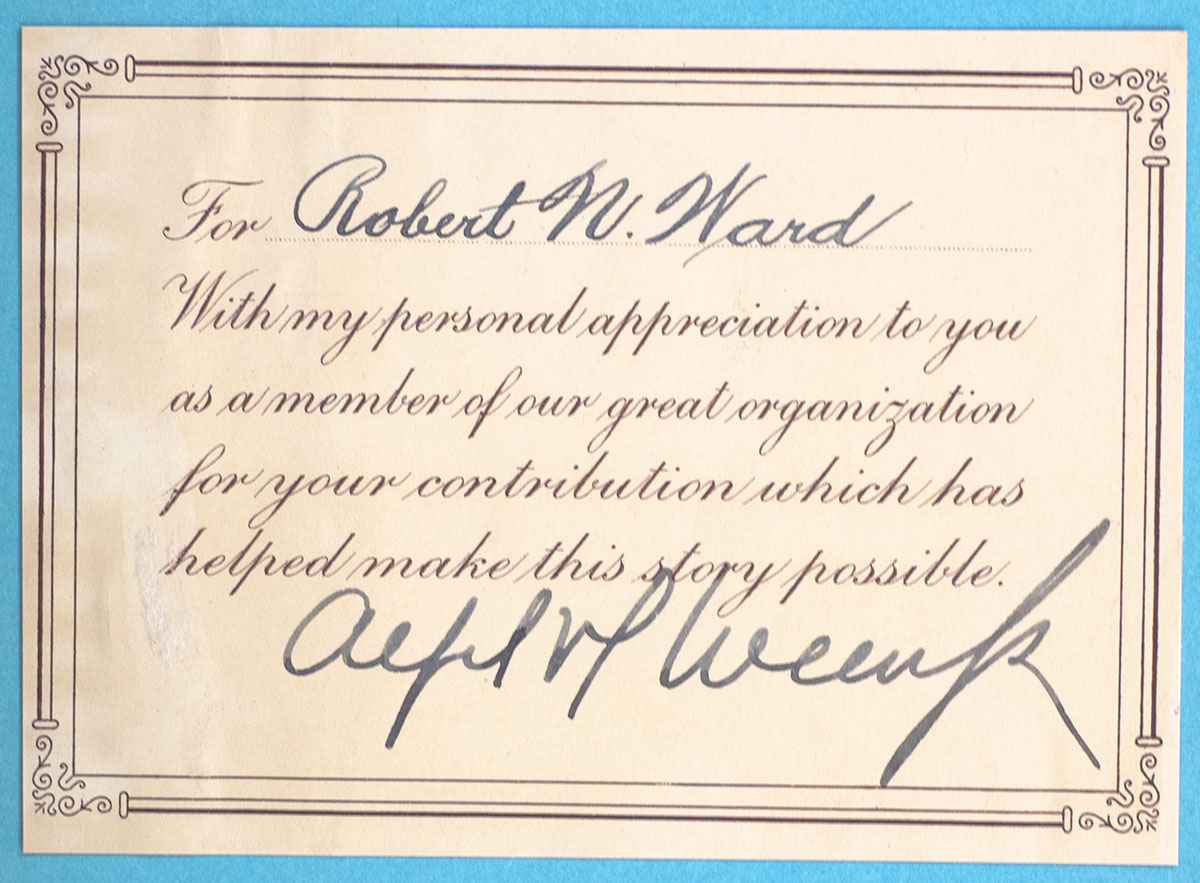 For Robert N. Ward
With my personal appreciation to you
as a member of our great organization
for your contribution which has
helped make this story possible.